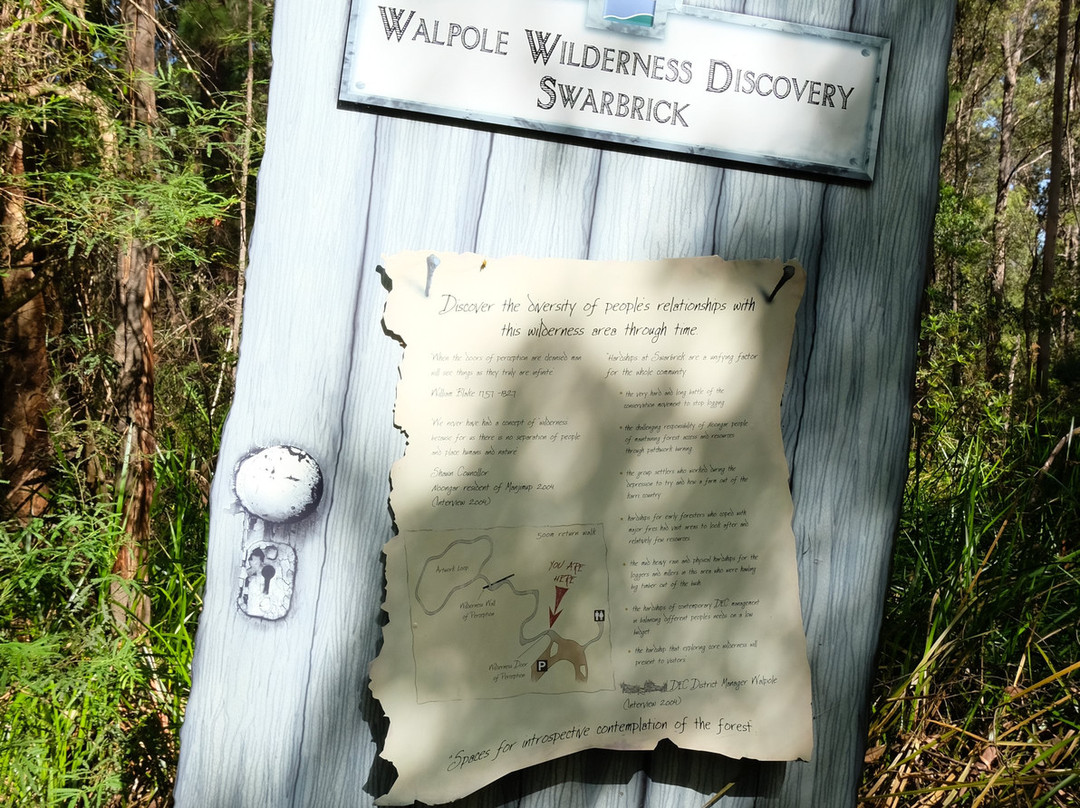 WALPOLE WILDERNESS DISCOVERY
SWARBRICK
Discover the diversity of people's relationships with
this wilderness area through time.
'When the doors of perception are cleansed man
will see things as they truly are infinite.'
William Blake 1757 -1827
'We never have had a concept of wilderness
because for us there is no separation of people
and place humans and nature.'
Shawn Councillor
Noongar resident of Manjimup 2004
(Interview 2004)
'Hardships at Swarbrick are a unifying factor
for the whole community
• the very hard and long battle of the
conservation movement to stop logging
• the challenging responsibility of Noongar people
of maintaining forest access and resources
through patchwork burning
• the group settlers who worked during the
depression to try and hew a farm out of the
karri country
• hardships for early foresters who coped with
major fires had vast areas to look after and
relatively few resources
• the mud heavy rain and physical hardships for the
loggers and millers in this area who were hauling
big timber out of the bush
• the hardships of contemporary DEC management
in balancing different people's needs on a low
budget
• the hardship that exploring core wilderness will
present to visitors
DEC District Manager Walpole
(Interview 2004)
500m return walk
Artwork Loop
YOU ARE
HERE
Wilderness Wall
of Perception
Wilderness Door
of Perception
P
"Spaces for introspective contemplation of the forest